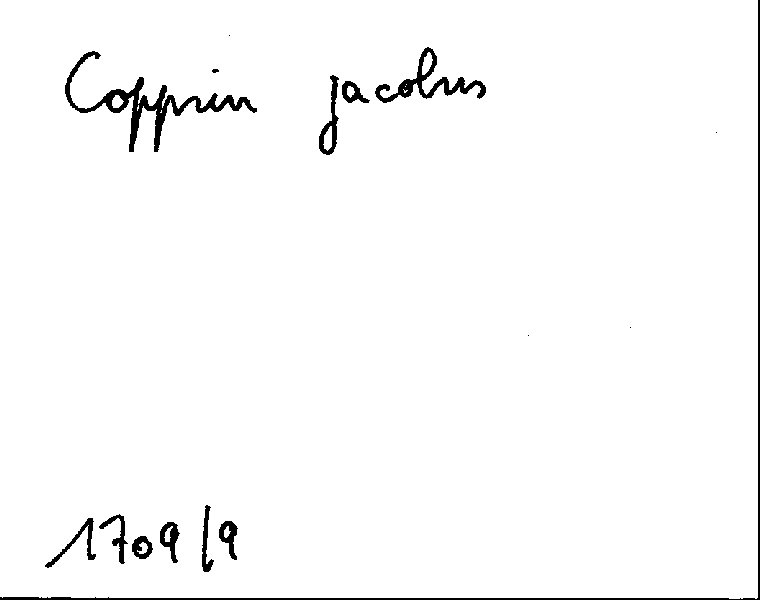 Coppin jacobus
1709/9